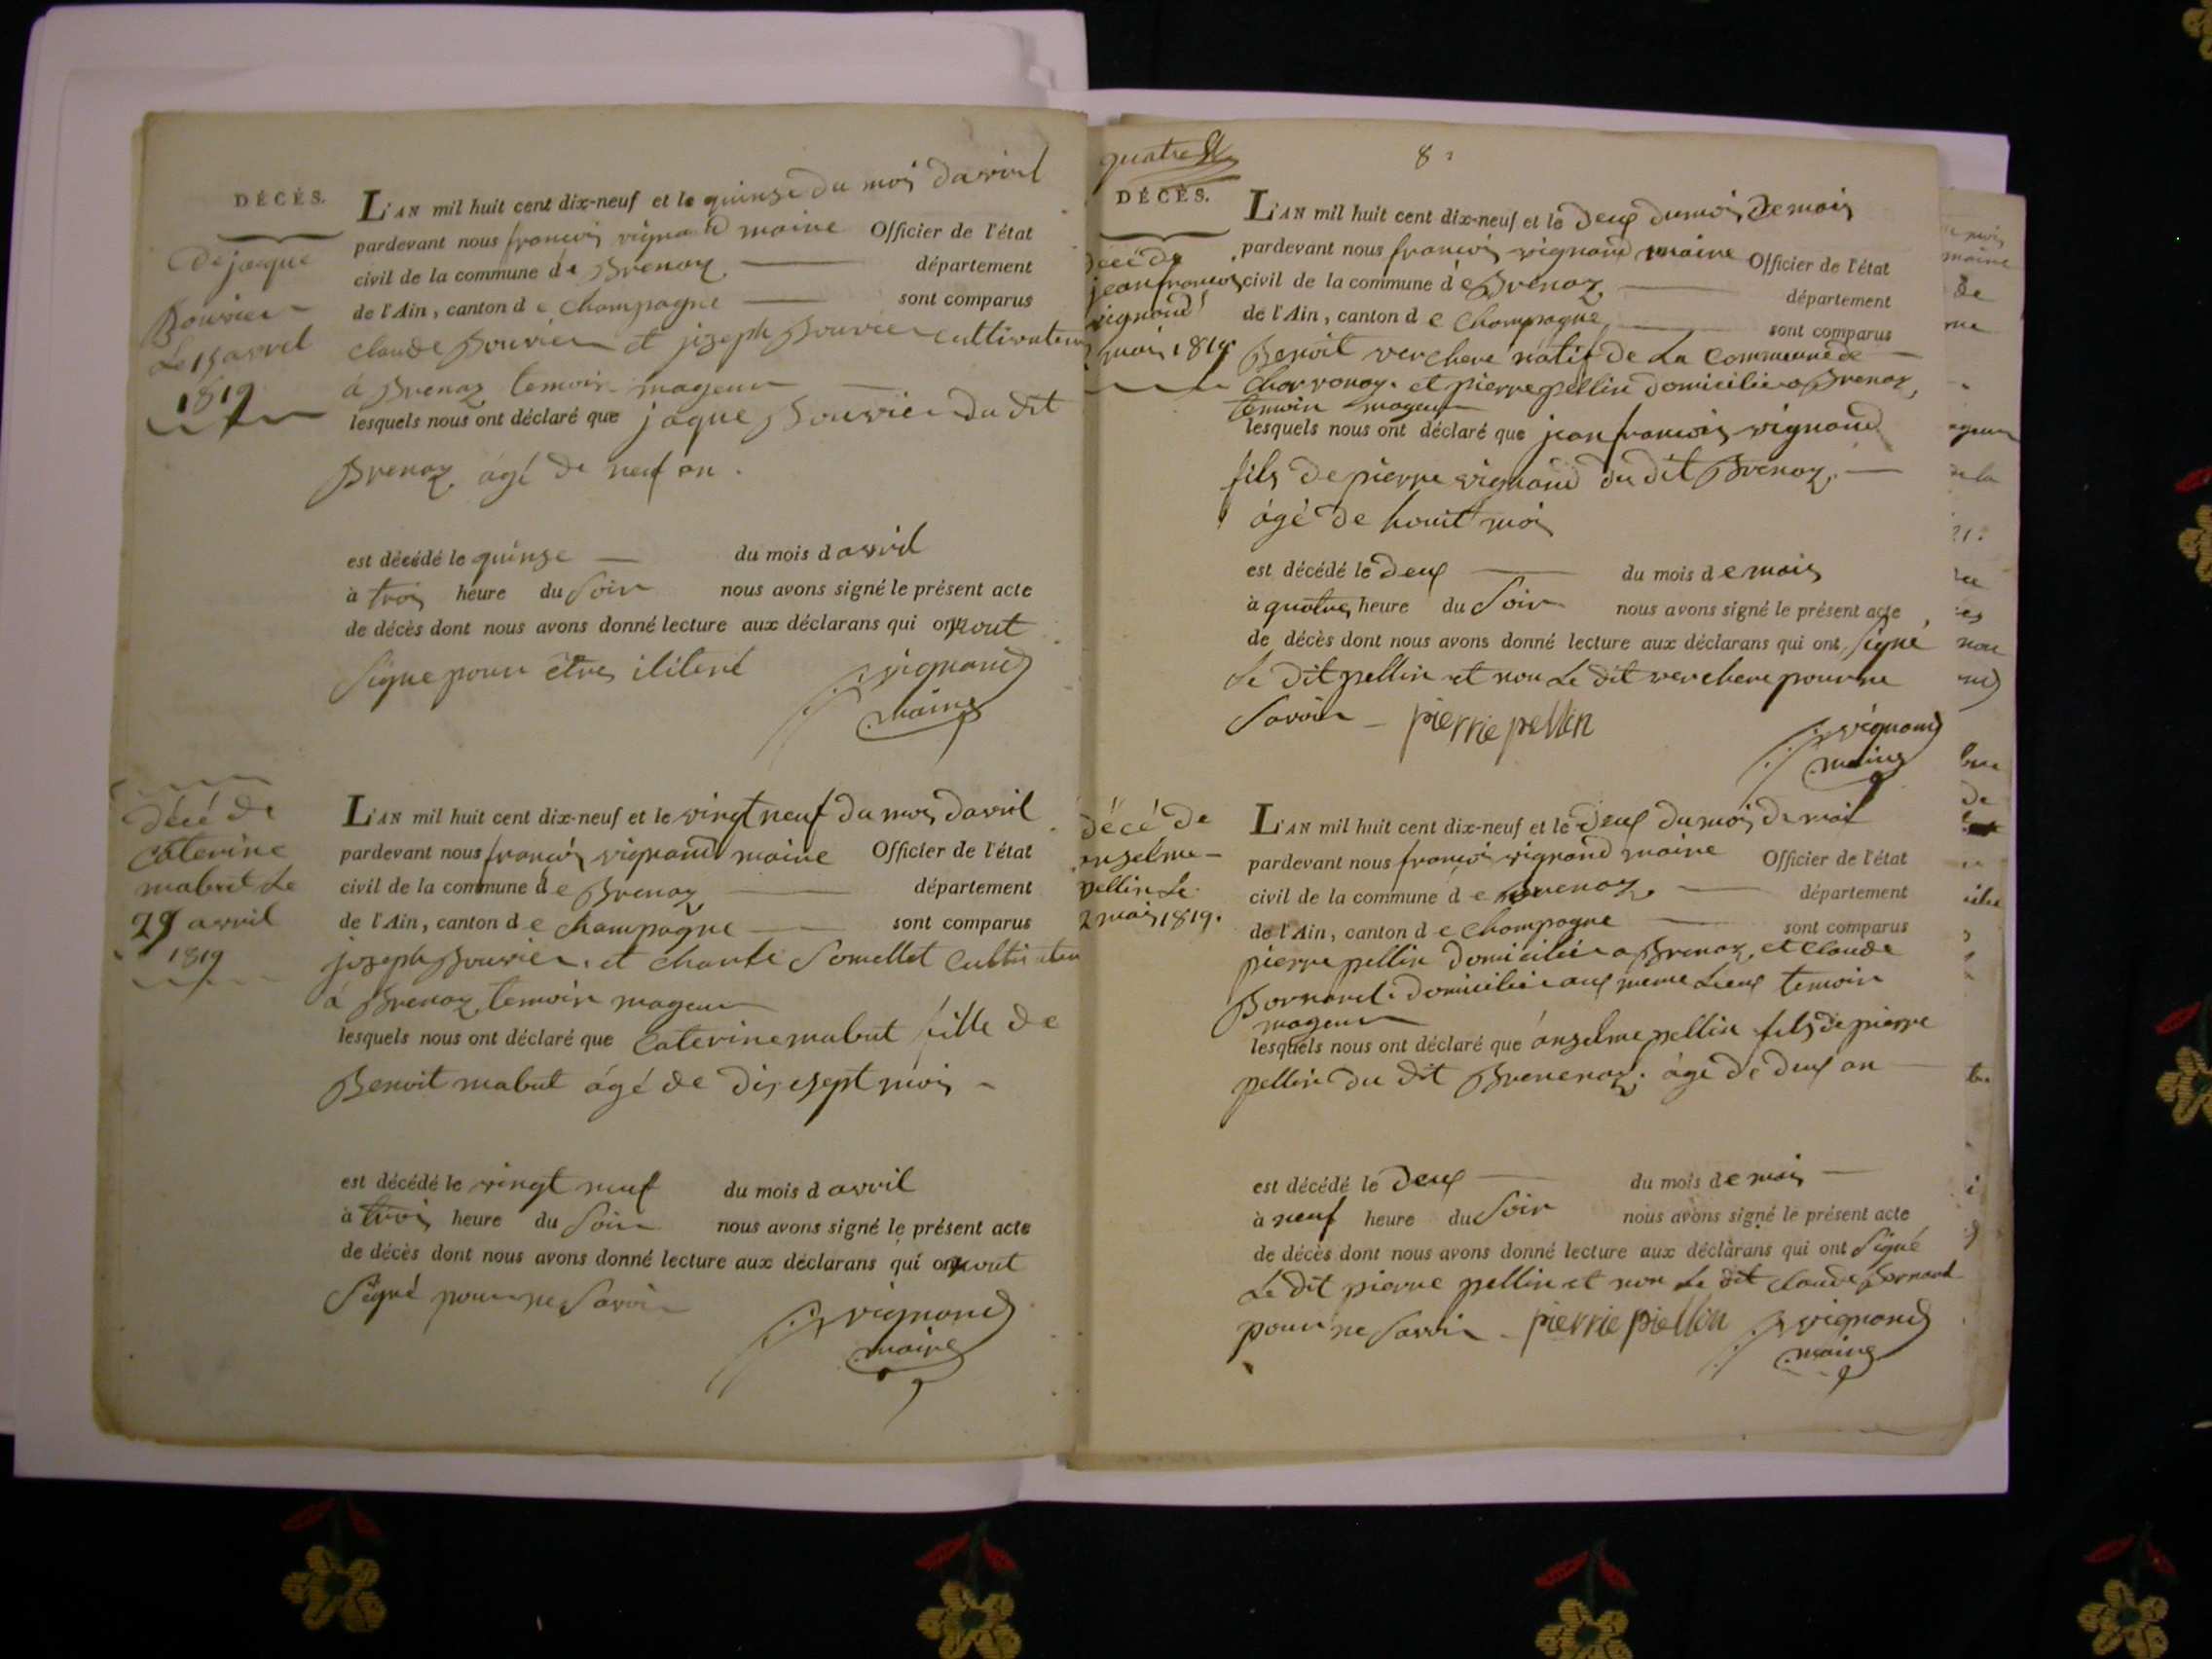 DÉCÈS.
De jacque
Bouvier
Le 15 avril
1819
L'AN mil huit cent dix-neuf et le quinse du mois davril
pardevant nous francois vignand maire Officier de l'état
civil de la commune de Brenaz département
de l'Ain, canton de Champagne sont comparus
Claude Bouvier et joseph Bouvier cultivateur
á Brenaz temoin mageur
lesquels nous ont déclaré que jaque Bouvier du dit
Brenaz ágé de neuf an.
est décédé le quinse du mois d avril
à trois heure du Soir nous avons signé le présent acte
de décès dont nous avons donné lecture aux déclarans qui on
Signe pour être iliteré
vignand
maire
décé de
Caterine
mabut Le
29 avril
1819
L'AN mil huit cent dix-neuf et le vingt neuf du mois davril
pardevant nous francois vignand maire Officier de l'état
civil de la commune de Brenaz département
de l'Ain, canton de Champagne sont comparus
joseph Bouvier. et Somellet Cultivateur
á Brenaz temoin mageur
lesquels nous ont déclaré que Caterine mabut fille de
Benoit mabut ágé de dix esept mois
est décédé le vingt neuf du mois d avril
à trois heure du Soir nous avons signé le présent acte
de décès dont nous avons donné lecture aux déclarans qui on
Signé pour ne Savoir
vignand
maire
quatre
8
DÉCÈS.
décé de
jean francois
vignand
2 mais 1819
L'AN mil huit cent dix-neuf et le Deux du mois De mais
pardevant nous francois vignand maire Officier de l'état
civil de la commune de Brenaz département
de l'Ain, canton de Champagne sont comparus
Benoit verchere natif de La Commune de
Charvonay. et pierre pellin domicilié a Brenaz,
temoin mageur
lesquels nous ont déclaré que jean francois vignand
fils de pierre vignand du dit Brenaz.
ágé de houit mois
est décédé le Deux du mois de mais
à quatres heure du Soir nous avons signé le présent acte
de décès dont nous avons donné lecture aux déclarans qui ont Signé
Le dit pellin et non Le dit verchere pour ne
Savoir pierrie pellin
vignand
maire
décé de
anselme
pellin Le
2 mais 1819.
L'AN mil huit cent dix-neuf et le Deux du mois de mai
pardevant nous françois vignand maire Officier de l'état
civil de la commune de Brenaz. département
de l'Ain, canton de Champagne sont comparus
pierre pellin domicilié a Brenaz, et Claude
Bornard. domicilié aux même Lieux temoin
mageur
lesquels nous ont déclaré que anselme pellin fils de pierre
pellin du dit Brenenaz. ágé de deux an
est décédé le Deux du mois de mais
à neuf heure du Soir nous avons signé le présent acte
de décès dont nous avons donné lecture aux déclarans qui ont Signé
Le dit pierre pellin et non Le dit Claude Bornard
pour ne Savoir pierrie piellin vignand
maire